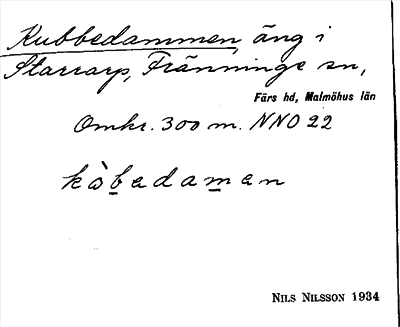 Kubbedammen, äng i
Starrarp, Fränninge sn,
Färs hd, Malmöhus län
Omkr. 300 m. NNO 22
kòbedaman
NILS NILSSON 1934